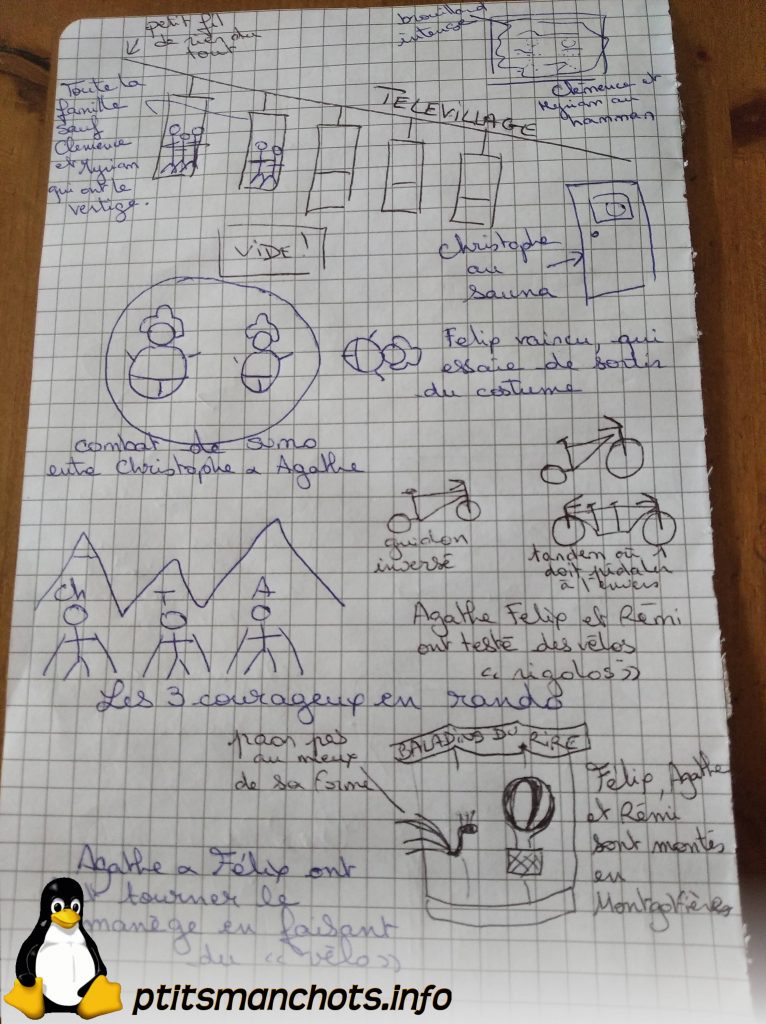 petit fil
de rien du
tout
brouillard
intense
Clémence et
Myriam au
hammam
TELEVILLAGE
Toute la
famille
sauf
Clémence
et Myriam
qui ont le
vertige.
VIDE !
Christophe
au
sauna
Felix vaincu, qui
essaie de sortir
du costume
combat de sumo
entre Christophe & Agathe
guidon
inversé
tandem où 1
doit pédaler
à l'envers
Agathe Felix et Rémi
ont testé des vélos
« rigolos »
Ch T A
Les 3 courageux en rando
paon pas
au mieux
de sa forme
BALADINS DU RIRE
Felix, Agathe
et Rémi
sont montés
en
Montgolfières
Agathe & Félix ont
tourner le
manège en faisant
du « vélo »
ptitsmanchots.info